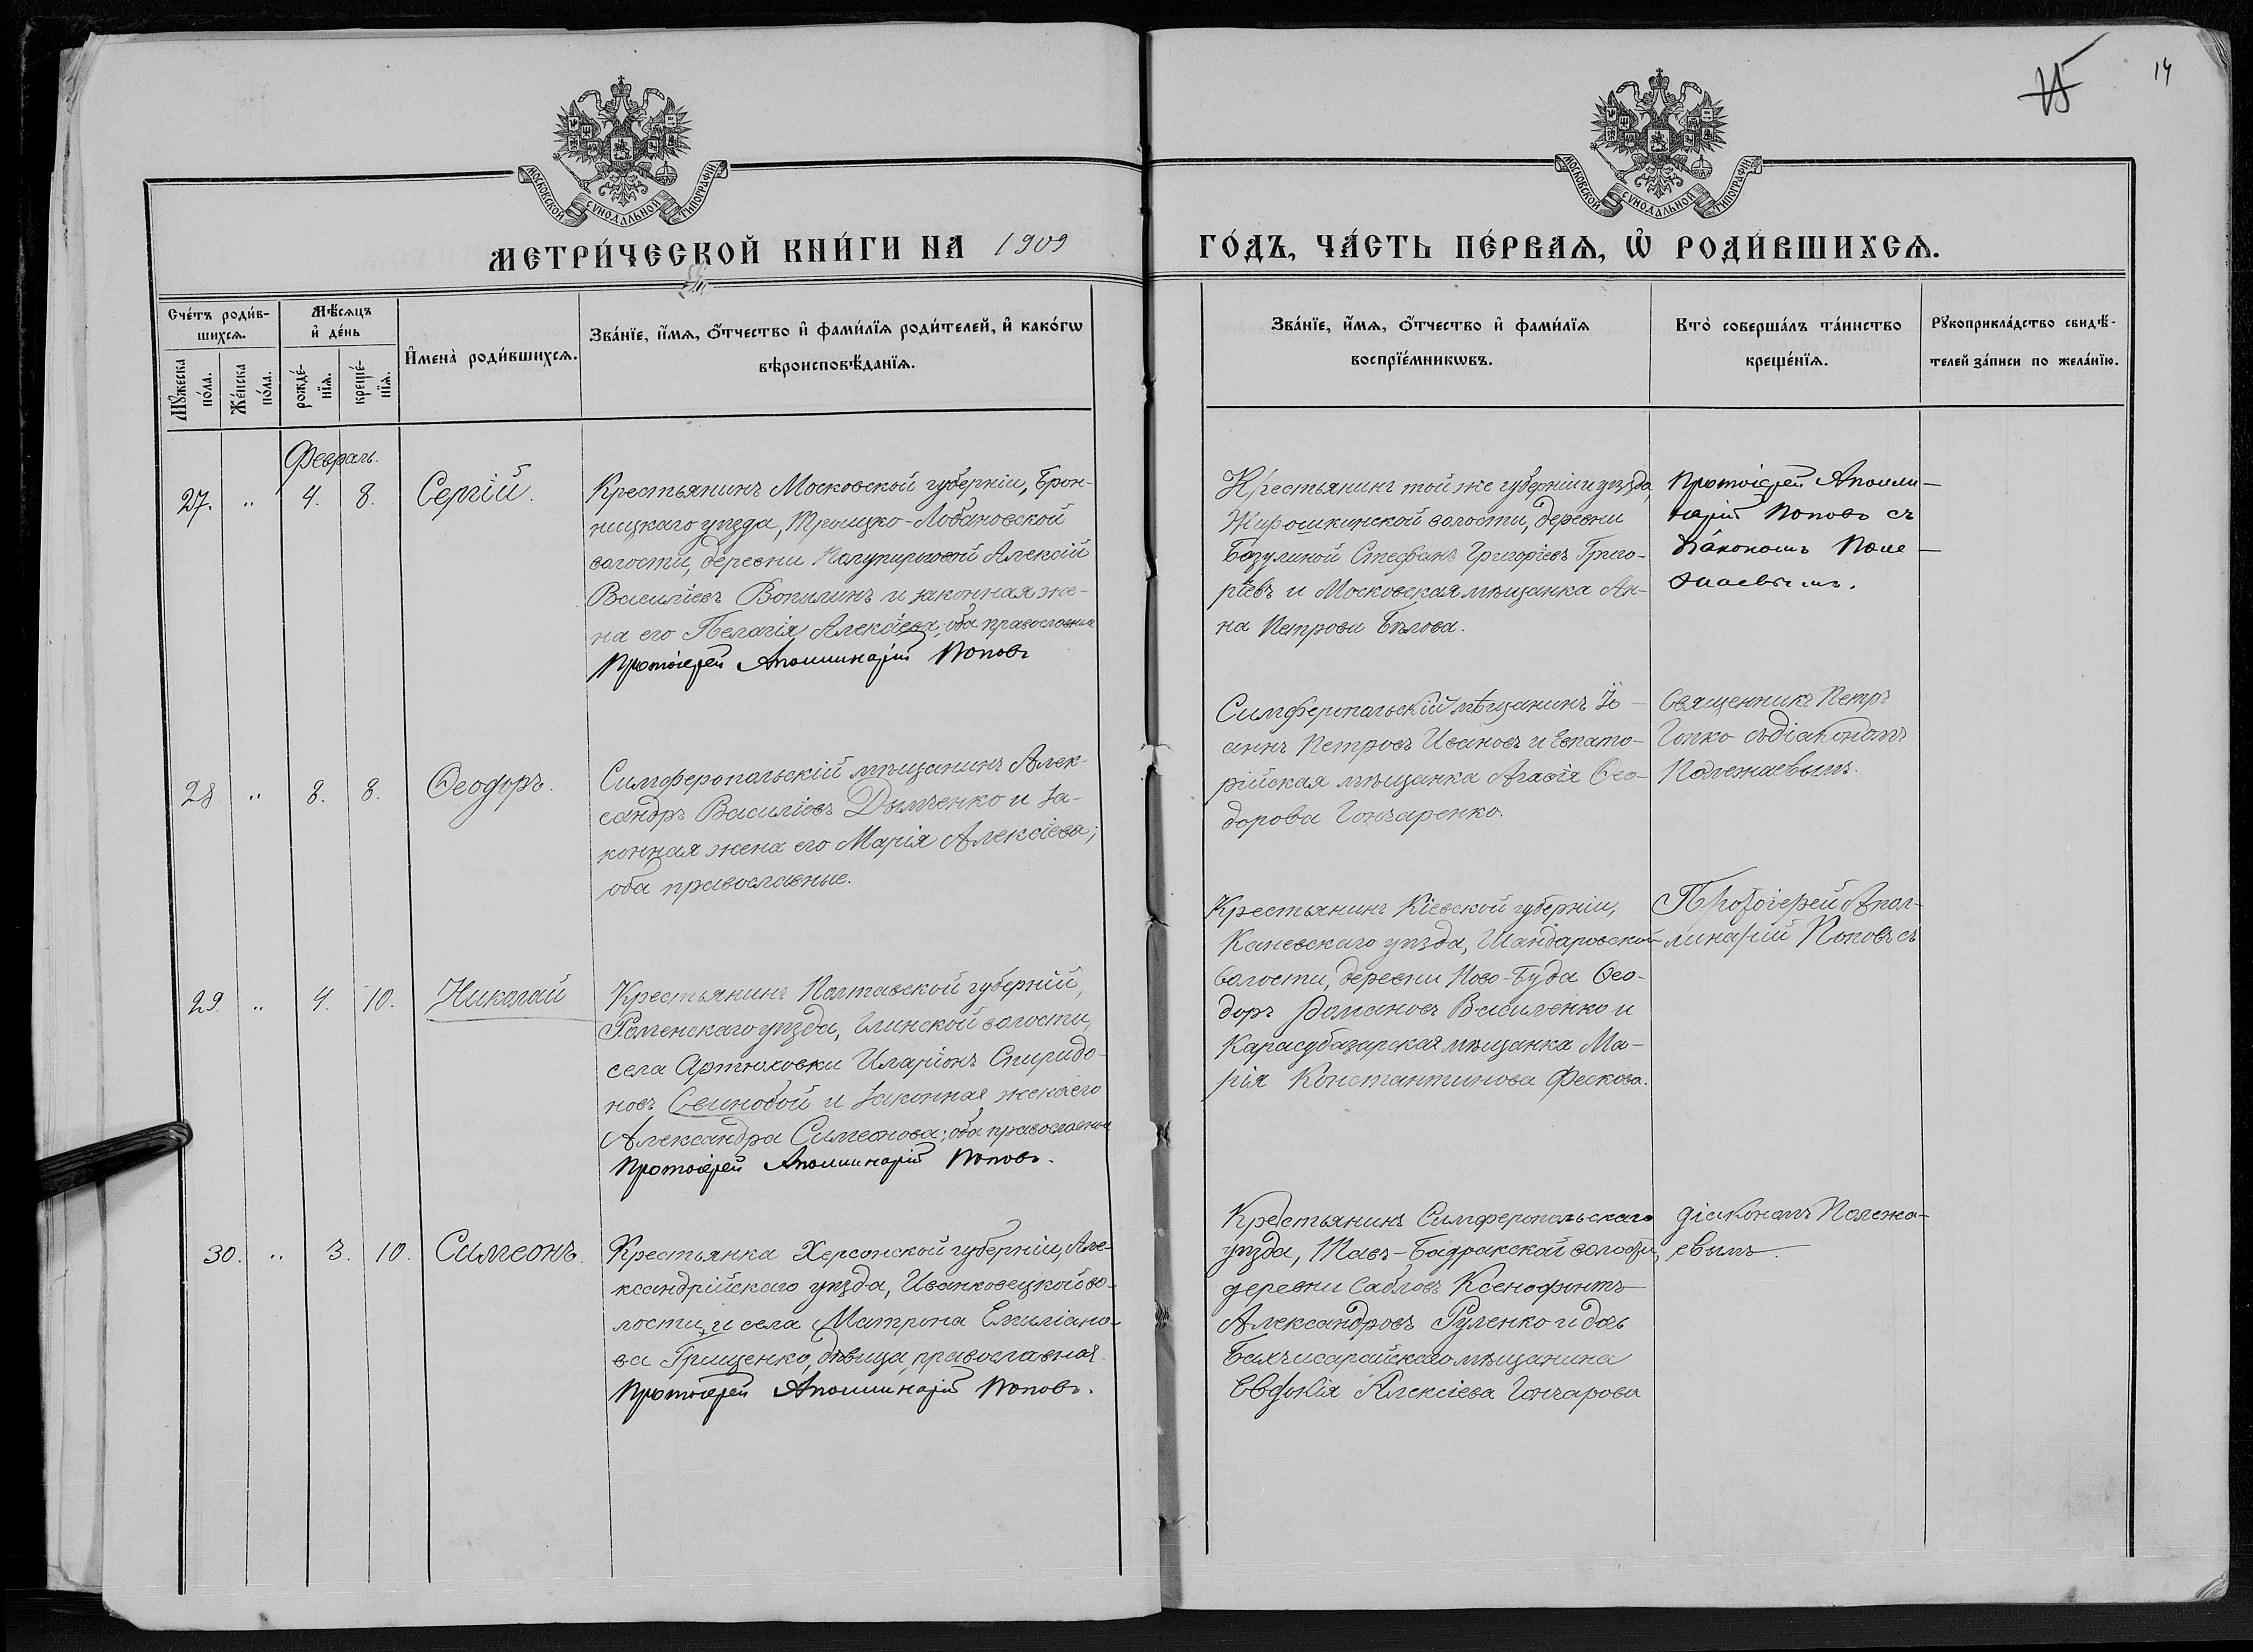 15
14
МОСКОВСКОЙ СУНОДАЛЬНОЙ ТИПОГРАФІИ
МОСКОВСКОЙ СУНОДАЛЬНОЙ ТИПОГРАФІИ
МЕТРИ́ЧЕСКОЙ КНИ́ГИ НА 1909
ГО́ДЪ, ЧА́СТЬ ПЕ́РВАѦ, Ѡ҆ РОДИ́ВШИХСѦ.
Сче́тъ роди́в-
шихсѧ.
Мꙋ́жеска
по́ла.
Же́нска
по́ла.
Мѣ́сѧцъ
и҆ де́нь
рожде́-
нїѧ.
креще́-
нїѧ.
И҆мена̀ роди́вшихсѧ.
Зва́нїе, и҆́мѧ, ѻ҆́тчество и҆ фами́лїѧ роди́телей, и҆ како́гѡ
вѣроисповѣ́данїѧ.
Зва́нїе, и҆́мѧ, ѻ҆́тчество и҆ фами́лїѧ
воспрїе́мникѡвъ.
Кто̀ соверша́лъ та́инство
креще́нїѧ.
Рꙋкоприкла́дство свидѣ́-
телей за́писи по жела́нїю.
Февраль.
27. " 4. 8. Сергій.
Крестьянинъ Московской губерніи, Брон-
ницкаго уѣзда, Троицко-Лобановской
волости, деревни Алексій
Василіевъ Вопилинъ и законная же-
на его Пелагія Алексіева; оба православные
Протоіерей Аполлинарій Поповъ
Крестьянинъ той же губерніи и уѣзда,
Жирошкинской волости, деревни
Стефанъ Григоріевъ Григо-
ріевъ и Московская мѣщанка Ан-
на Петрова Бѣлова.
Протоіерей Аполли-
нарій Поповъ съ
діакономъ Поле-
жаевымъ.
28 " 8. 8. Ѳеодоръ.
Симферопольскій мѣщанинъ Алек-
сандръ Василіевъ Дымченко и за-
конная жена его Марія Алексіева;
оба православные.
Симферопольскій мѣщанинъ Іо-
аннъ Петровъ Ивановъ и Евпато-
рійская мѣщанка Агаѳія Ѳео-
дорова Гончаренко.
Священникъ Петръ
Гопко съ діакономъ
Полежаевымъ.
29. " 4. 10. Николай
Крестьянинъ Полтавской губерніи,
Роменскаго уѣзда, Глинской волости,
села Артюховки Иларіонъ Спиридо-
новъ Свинобой и законная жена его
Александра Симеонова; оба православные
Протоіерей Аполлинарій Поповъ.
Крестьянинъ Кіевской губерніи,
Каневскаго уѣзда, Шандаровской
волости, деревни Ново-Буда Ѳео-
доръ Романовъ Василенко и
Карасубазарская мѣщанка Ма-
рія Константинова Фескова.
Протоіерей Апол-
линарій Поповъ съ
30. " 3. 10. Симеонъ.
Крестьянка Херсонской губерніи, Але-
ксандрійскаго уѣзда, Иванковецкой во-
лости, и села Матрона Емиліано-
ва Грищенко, дѣвица, православная.
Протоіерей Аполлинарій Поповъ.
Крестьянинъ Симферопольскаго
уѣзда, Тавъ-Бадракской волости,
деревни Сабловъ Ксенофонтъ
Александровъ Руленко и дочь
Бахчисарайскаго мѣщанина
Евдокія Алексіева Гончарова
діакономъ Полежа-
евымъ.